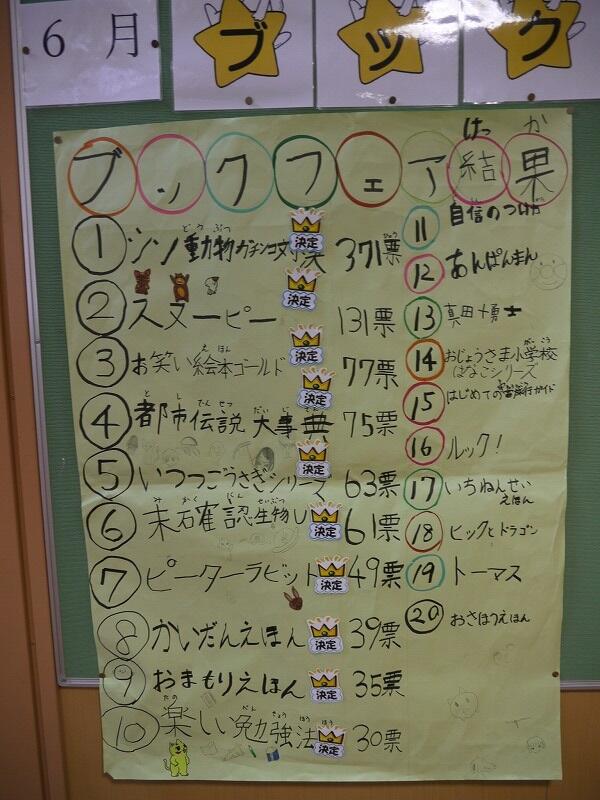 6月
ブック
けっか
ブックフェア結果
① シン動物ガチンコ対決 決定 371票
どうぶつ
ひょう
② スヌーピー 決定 131票
③ お笑い絵本ゴールド 決定 77票
えほん
④ 都市伝説大事典 決定 75票
としでんせつだいじてん
⑤ いつつごうさぎシリーズ 決定 63票
⑥ 未確認生物U 決定 61票
みかくにんせいぶつ
⑦ ピーターラビット 決定 49票
⑧ かいだんえほん 決定 39票
⑨ おまもりえほん 決定 35票
⑩ 楽しい勉強法 決定 30票
たの
べんきょうほう
⑪ 自信のつけ
⑫ あんぱんまん
⑬ 真田十勇士
⑭ おじょうさま小学校
がっこう
はなこシリーズ
⑮ はじめての
ガイド
⑯ ルック!
⑰ いちねんせい
えほん
⑱ ヒックとドラゴン
⑲ トーマス
⑳ おさほうえほん